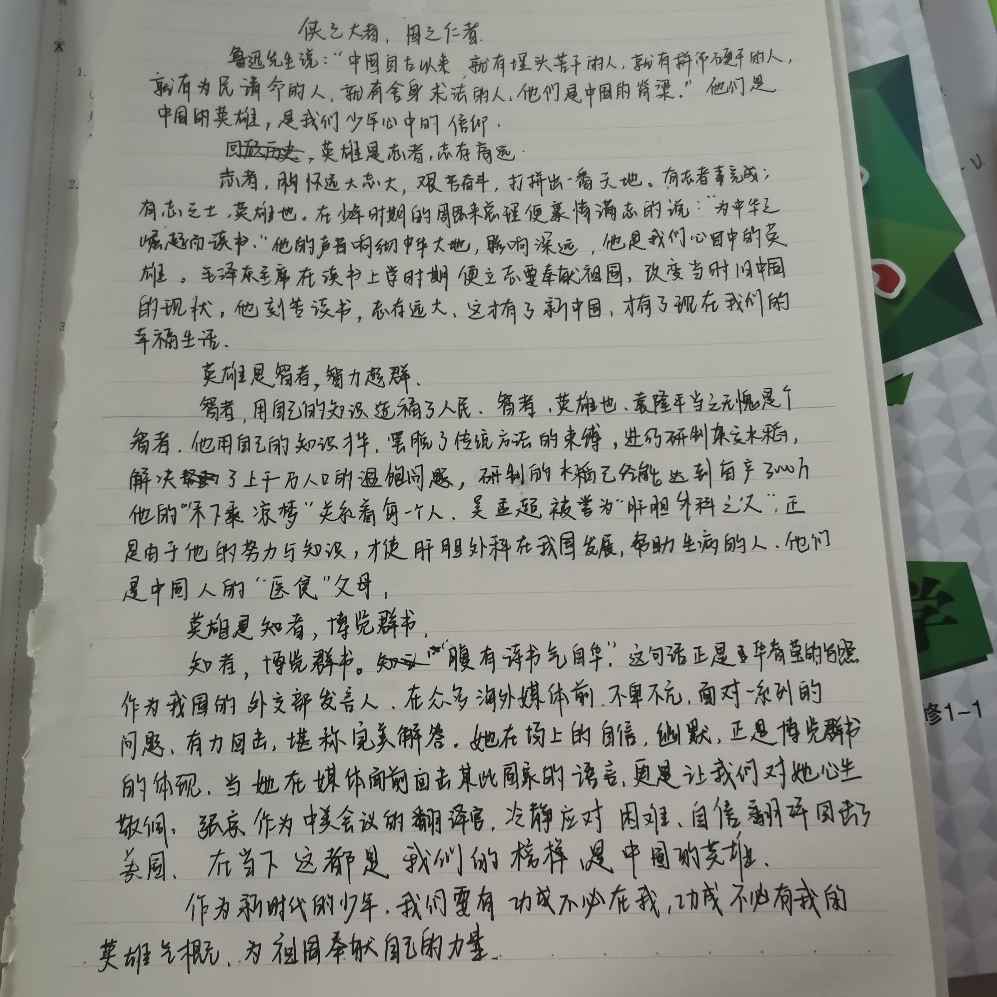 侠之大者，国之仁者.
鲁迅先生说："中国自古以来，就有埋头苦干的人，就有拼命硬干的人，
就有为民请命的人，就有舍身求法的人，他们是中国的脊梁."他们是
中国的英雄，是我们少年心中的信仰.
回顾历史，英雄是志者，志存高远.
志者，胸怀远大志大，艰苦奋斗，打拼出一番天地。有志者事竟成；
有志之士，英雄也。在少年时期的周恩来总理便豪情满志的说："为中华之
崛起而读书."他的声音响彻中华大地，影响深远，他是我们心目中的英
雄。毛泽东主席在读书上学时期便立志要奉献祖国，改变当时旧中国
的现状，他刻苦读书，志存远大、这才有了新中国，才有了现在我们的
幸福生活.
英雄是智者，智力超群.
智者，用自己的知识造福了人民、智者，英雄也、袁隆平当之无愧是个
智者.他用自己的知识才华，摆脱了传统方法的束缚，进行研制杂交水稻，
解决了上千万人口的温饱问题，研制的水稻已经能达到亩产3000斤
他的"禾下乘凉梦"关系着每一个人、吴孟超被誉为"肝胆外科之父"；正
是由于他的努力与知识，才使肝胆外科在我国发展，帮助生病的人.他们
是中国人的"医食"父母，
英雄是知者，博览群书，
知者，博览群书。"腹有诗书气自华."这句话正是华春莹的写照
作为我国的外交部发言人、在众多海外媒体前，不卑不亢，面对一系列的
问题，有力回击，堪称完美解答。她在场上的自信，幽默，正是博览群书
的体现、当她在媒体面前回击某些国家的语言，更是让我们对她心生
敬佩、张京作为中美会议的翻译官，冷静应对困难、自信翻译回击了
美国、在当下这都是我们的榜样，是中国的英雄.
作为新时代的少年，我们要有功成不必在我，功成不必有我的
英雄气概，为祖国奉献自己的力量.
学
修1-1